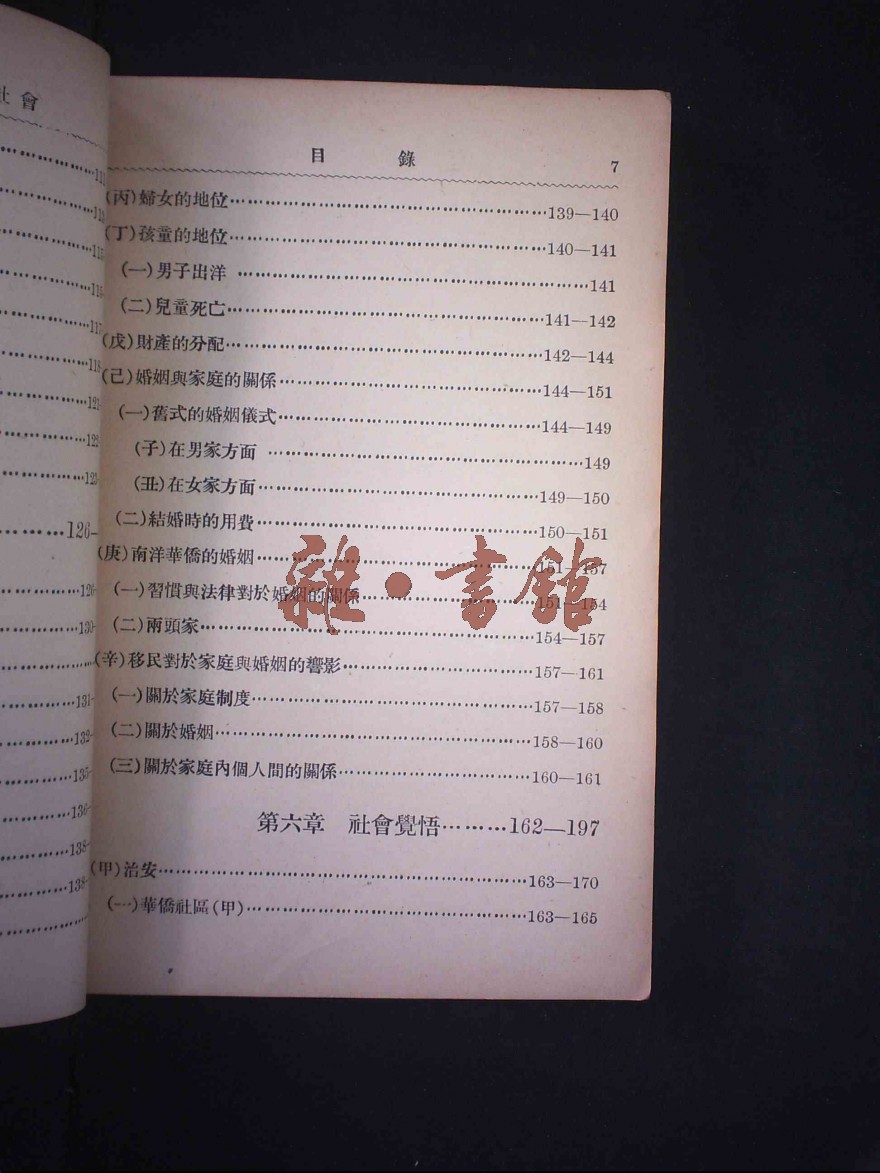 社會
目　錄　7
(丙)婦女的地位…139—140
(丁)孩童的地位…140—141
(一)男子出洋…141
(二)兒童死亡…141—142
(戊)財產的分配…142—144
(己)婚姻與家庭的關係…144—151
(一)舊式的婚姻儀式…144—149
(子)在男家方面…149
(丑)在女家方面…149—150
(二)結婚時的用費…150—151
(庚)南洋華僑的婚姻…151—157
(一)習慣與法律對於婚姻的關係…151—154
(二)兩頭家…154—157
(辛)移民對於家庭與婚姻的響影…157—161
(一)關於家庭制度…157—158
(二)關於婚姻…158—160
(三)關於家庭內個人間的關係…160—161
第六章　社會覺悟…162—197
(甲)治安…163—170
(一)華僑社區(甲)…163—165
雜·書館